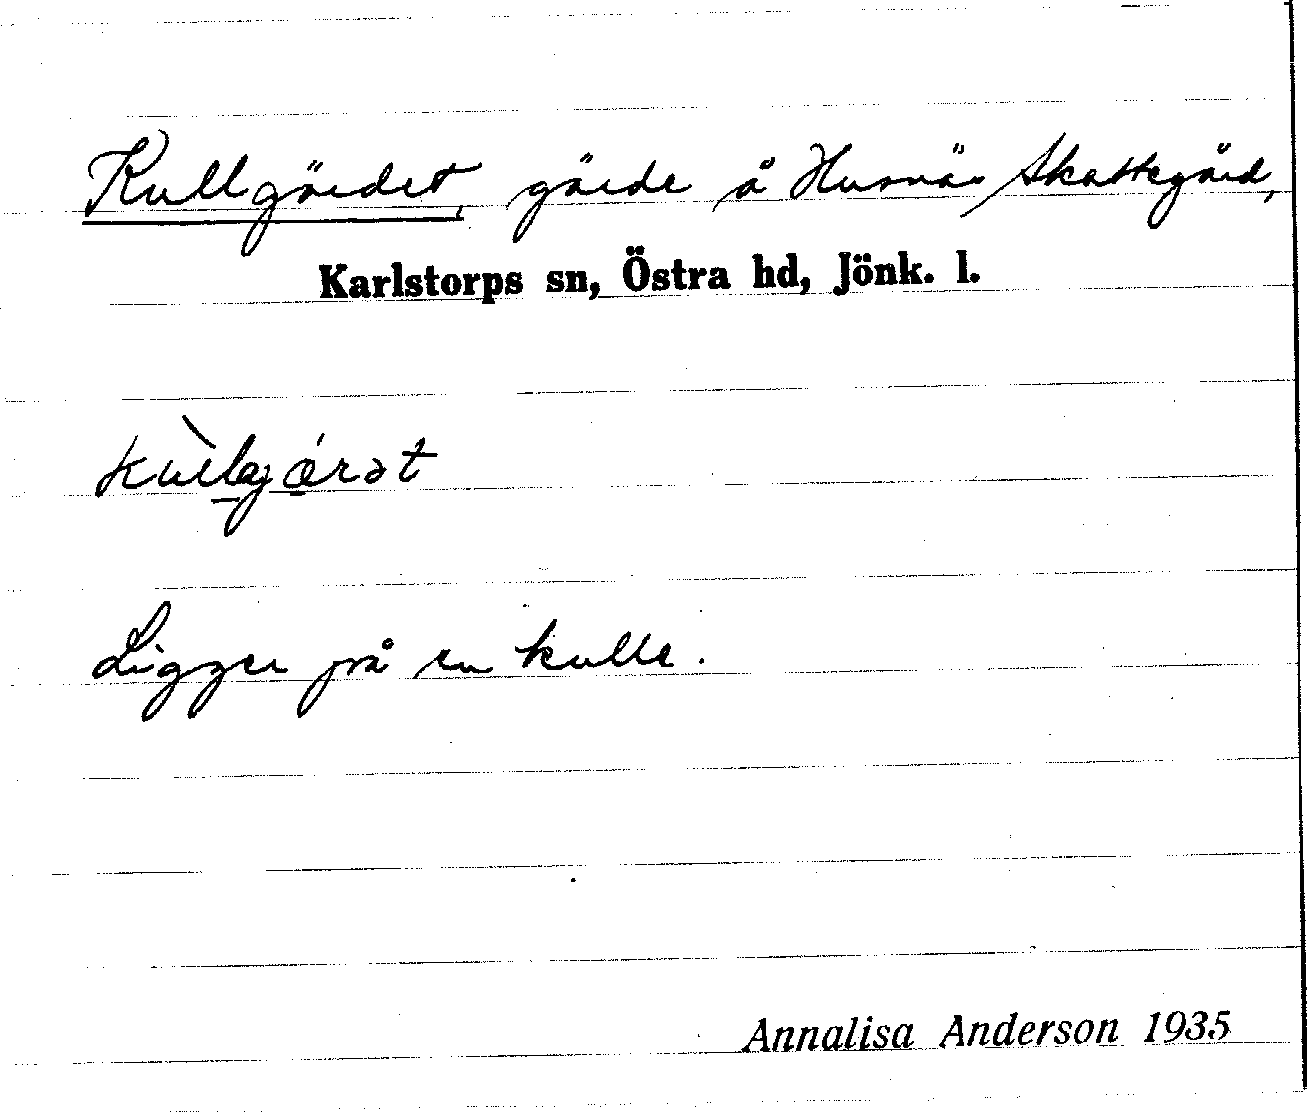 Kullgärdet, gärde å Husnäs Skattegård,
Karlstorps sn, Östra hd, Jönk. l.
Ligger på en kulle.
Annalisa Anderson 1935